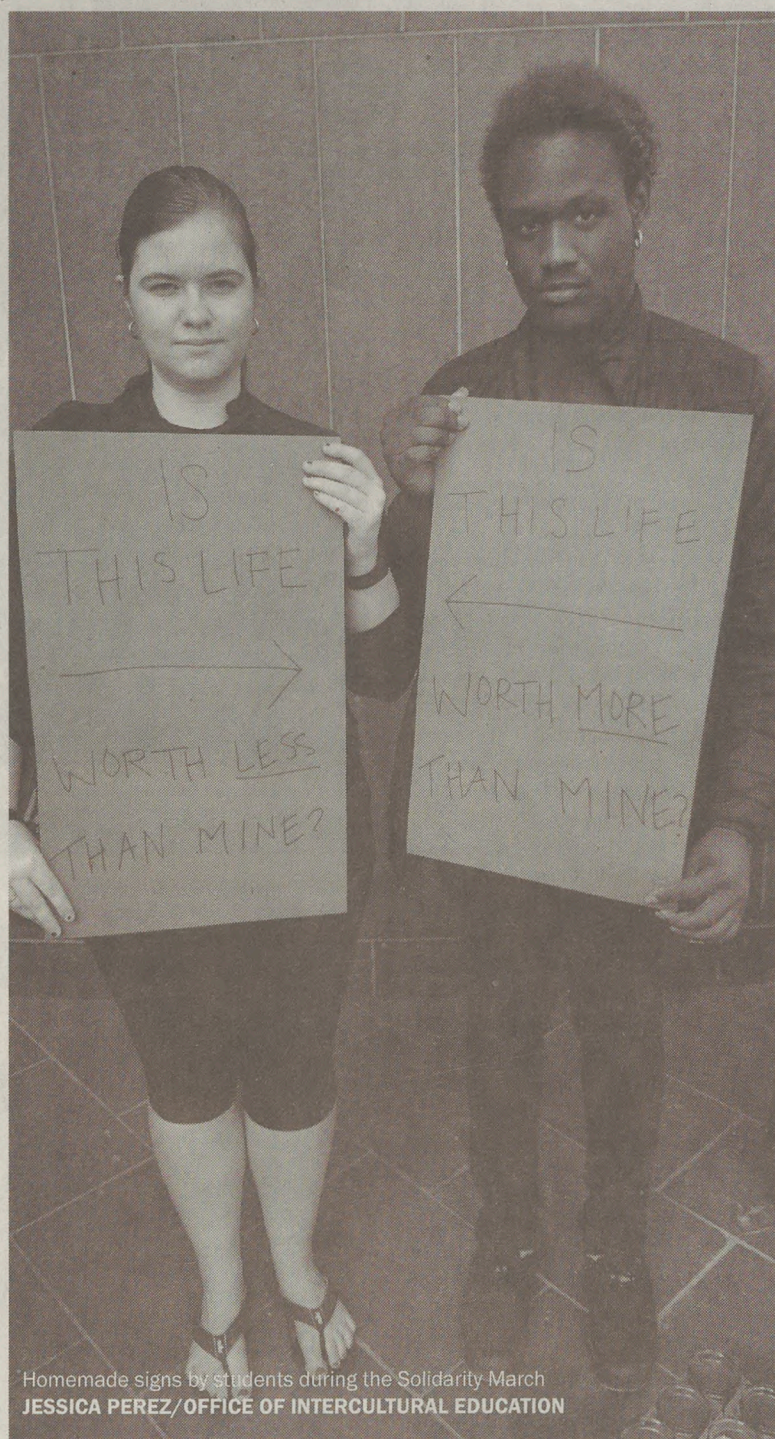 IS
THIS LIFE
WORTH LESS
THAN MINE?
IS
THIS LIFE
WORTH MORE
THAN MINE?
Homemade signs by students during the Solidarity March
JESSICA PEREZ/OFFICE OF INTERCULTURAL EDUCATION